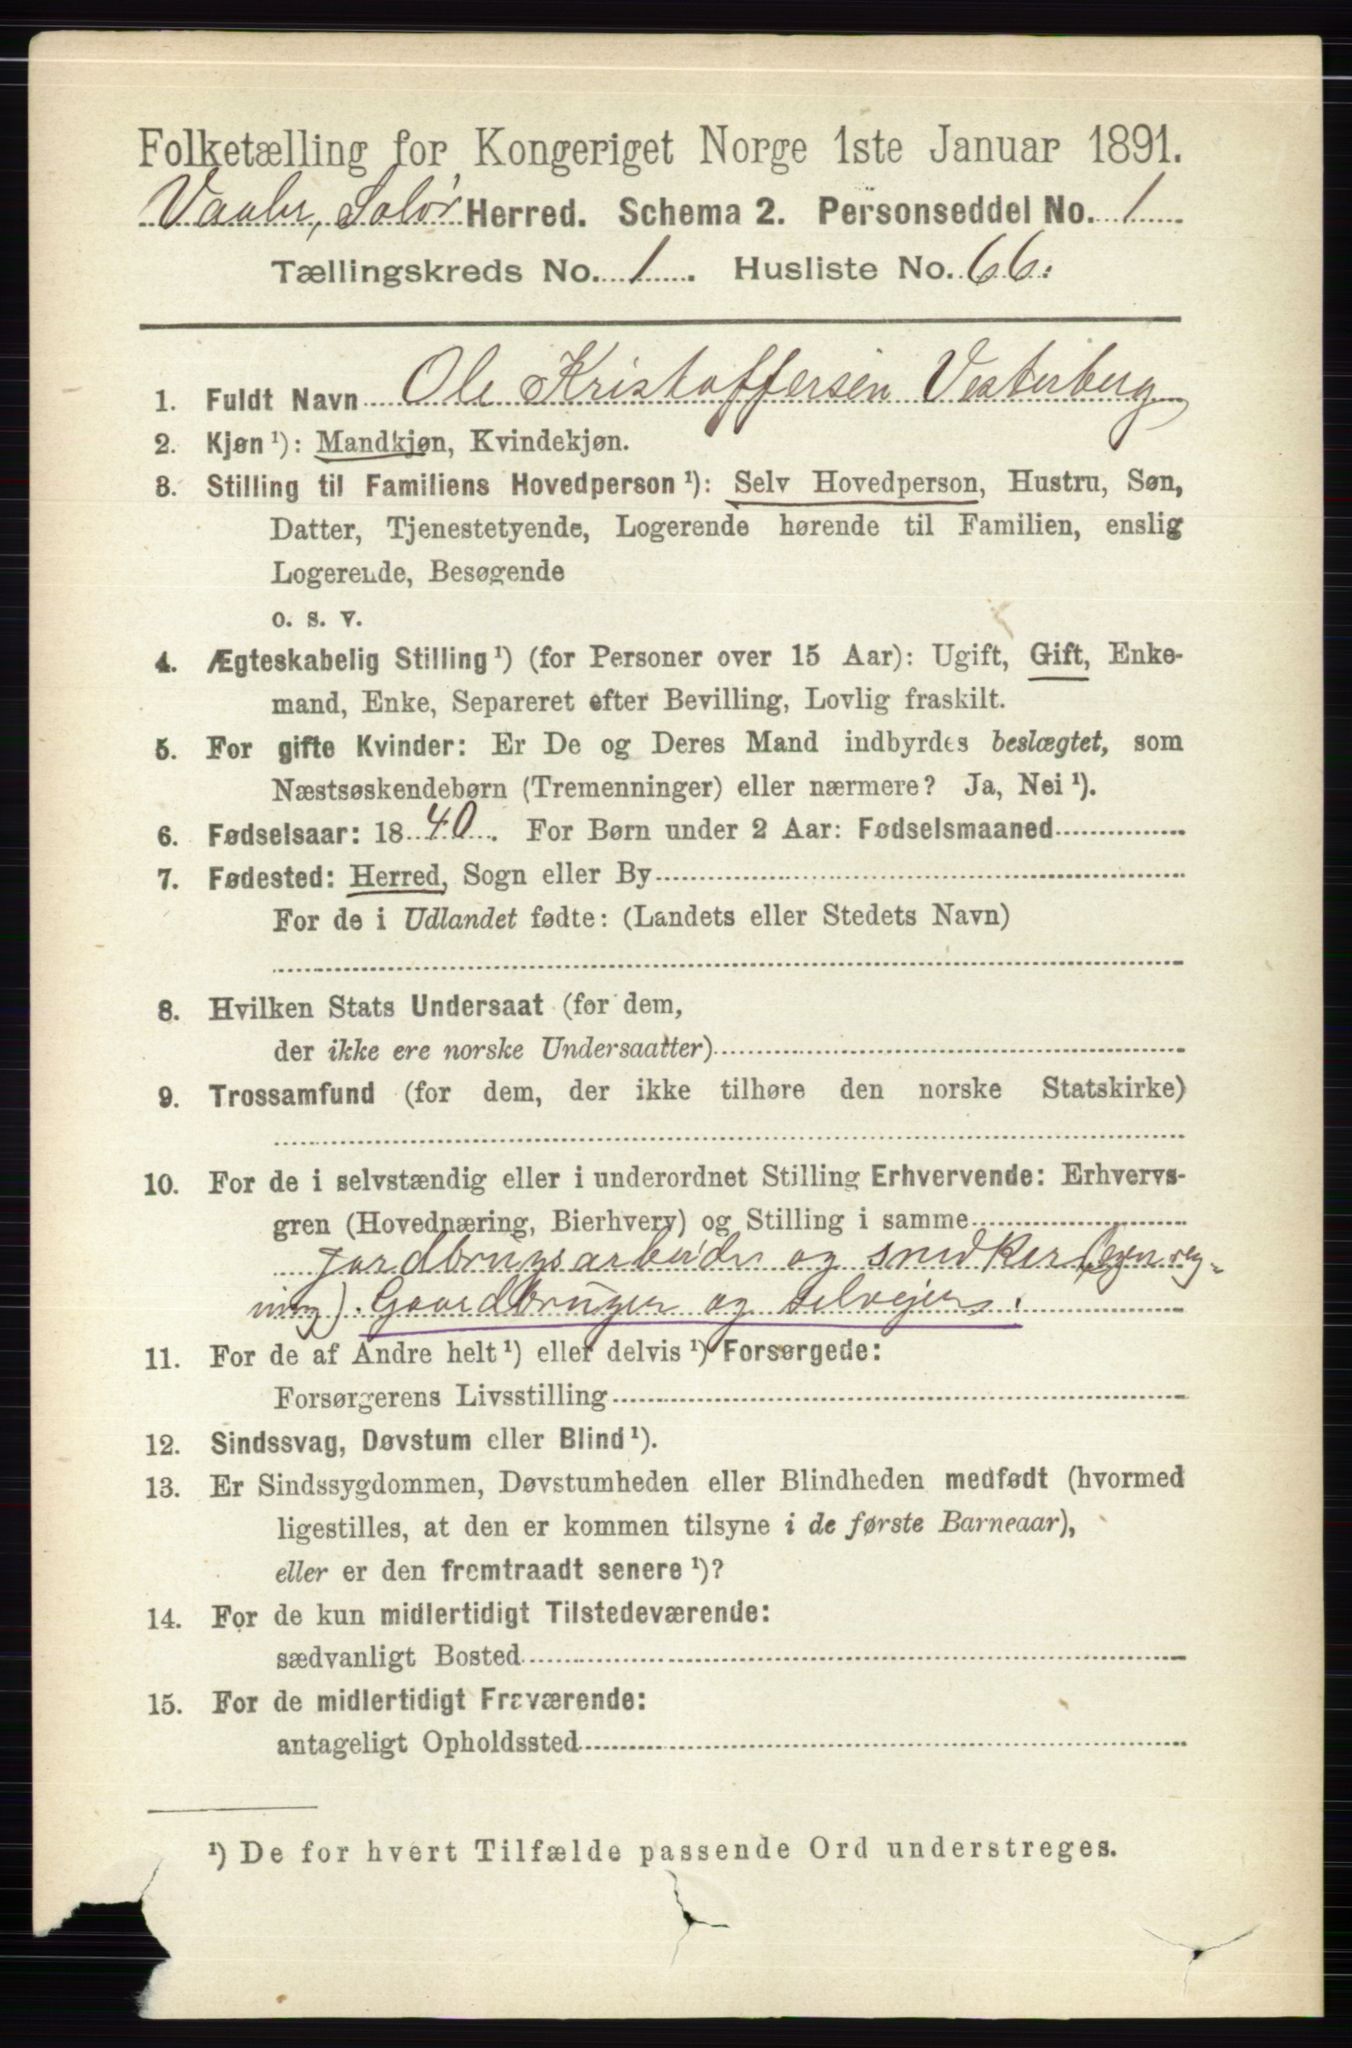 Folketælling for Kongeriget Norge 1ste Januar 1891.
Vaaler, Solør Herred. Schema 2. Personseddel No. 1
Tællingskreds No. 1. Husliste No. 66.
1. Fuldt Navn Ole Kristoffersen Vesterberg
2. Kjøn ¹): Mandkjøn, Kvindekjøn.
3. Stilling til Familiens Hovedperson ¹): Selv Hovedperson, Hustru, Søn,
Datter, Tjenestetyende, Logerende hørende til Familien, enslig
Logerende, Besøgende
o. s. v.
4. Ægteskabelig Stilling ¹) (for Personer over 15 Aar): Ugift, Gift, Enke-
mand, Enke, Separeret efter Bevilling, Lovlig fraskilt.
5. For gifte Kvinder: Er De og Deres Mand indbyrdes beslægtet, som
Næstsøskendebørn (Tremenninger) eller nærmere? Ja, Nei ¹).
6. Fødselsaar: 1840. For Børn under 2 Aar: Fødselsmaaned
7. Fødested: Herred, Sogn eller By
For de i Udlandet fødte: (Landets eller Stedets Navn)
8. Hvilken Stats Undersaat (for dem,
der ikke ere norske Undersaatter)
9. Trossamfund (for dem, der ikke tilhøre den norske Statskirke)
10. For de i selvstændig eller i underordnet Stilling Erhvervende: Erhvervs-
gren (Hovednæring, Bierhverv) og Stilling i samme
Jordbrugsarbeider og snedker (egen reg-
ning). Gaardbruger og selveier.
11. For de af Andre helt ¹) eller delvis ¹) Forsørgede:
Forsørgerens Livsstilling
12. Sindssvag, Døvstum eller Blind ¹).
13. Er Sindssygdommen, Døvstumheden eller Blindheden medfødt (hvormed
ligestilles, at den er kommen tilsyne i de første Barneaar),
eller er den fremtraadt senere ¹)?
14. For de kun midlertidigt Tilstedeværende:
sædvanligt Bosted
15. For de midlertidigt Fraværende:
antageligt Opholdssted
¹) De for hvert Tilfælde passende Ord understreges.